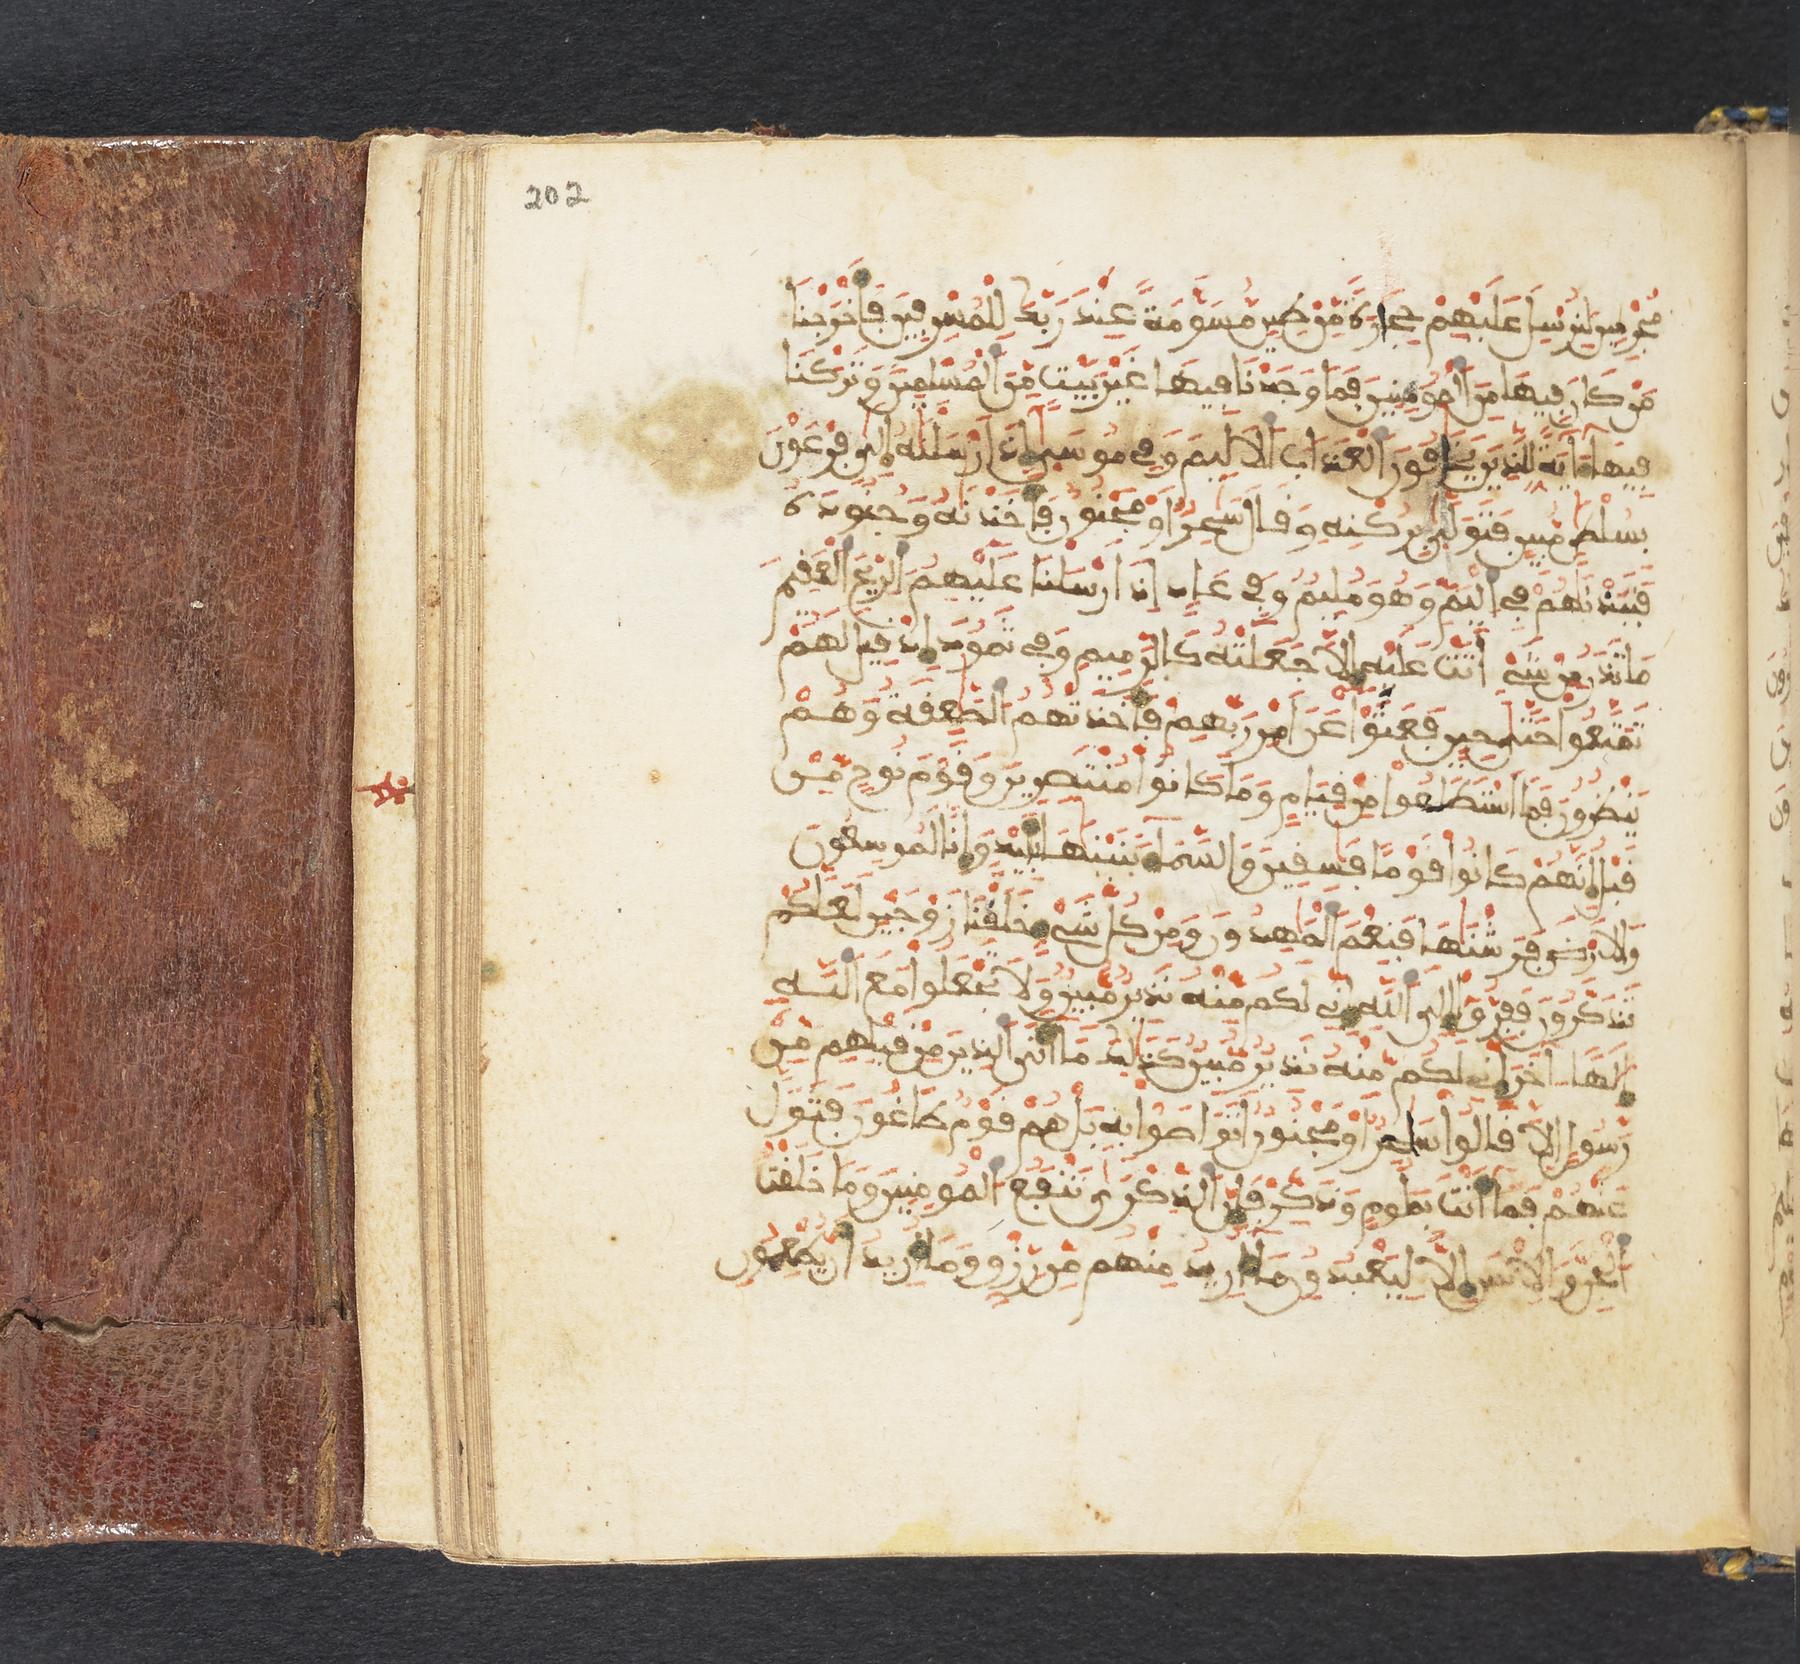 202
مجرمين لنرسل عليهم حجارة من طين مسومة عند ربك للمسرفين فأخرجنا
من كان فيها من المومنين فما وجدنا فيها غير بيت من المسلمين وتركنا
فيها ءاية للذين يخافون العذاب الاليم وفي موسى إذ ارسلنه إلى فرعون
بسلطن مبين فتولى بركنه وقال سحر او مجنون فأخذنه وجنوده
فنبذنهم في اليم وهو مليم وفي عاد إذ ارسلنا عليهم الريح العقيم
ما تذر من شيء اتت عليه إلا جعلته كالرميم وفي ثمود إذ قيل لهم
تمتعوا حتى حين فعتوا عن امر ربهم فأخذتهم الصعقة وهم
ينظرون فما استطعوا من قيام وما كانوا منتصرين وقوم نوح من
قبل إنهم كانوا قوما فسقين والسماء بنينها بأييد وإنا لموسعون
والارض فرشنها فنعم المهدون ومن كل شيء خلقنا زوجين لعلكم
تذكرون ففروا إلى الله إني لكم منه نذير مبين ولا تجعلوا مع الله
إلها اخر إني لكم منه نذير مبين كذلك ما أتى الذين من قبلهم من
رسول إلا قالوا ساحر او مجنون اتواصوا به بل هم قوم طاغون فتول
عنهم فما أنت بملوم وذكر فإن الذكرى تنفع المومنين وما خلقت
الجن والانس إلا ليعبدون ما أريد منهم من رزق وما أريد ان يطعمون